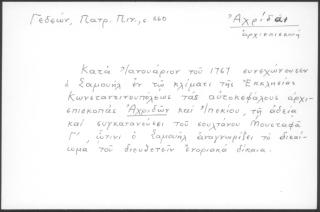 Γεδεών, Πατρ. Πιν., σ 660
Ἀχρίδα
ἀρχιεπισκοπή
Κατά Ἰανουάριον τοῦ 1767 συνεχώνευσεν
ὁ Σαμουήλ ἐν τῷ κλίματι τῆς Ἐκκλησίας
Κωνσταντινουπόλεως τάς αὐτοκεφάλους ἀρχι-
επισκοπάς Ἀχριδῶν καί Ἰπεκίου, τῇ ἀδείᾳ
καί συγκαταινεύσει τοῦ σουλτάνου Μουσταφᾶ
Γ', ὥτινι ὁ Σαμουήλ ἀναγνωρίζει τό δικαί-
ωμα τοῦ διευθετεῖν ἐνοριακά δίκαια.